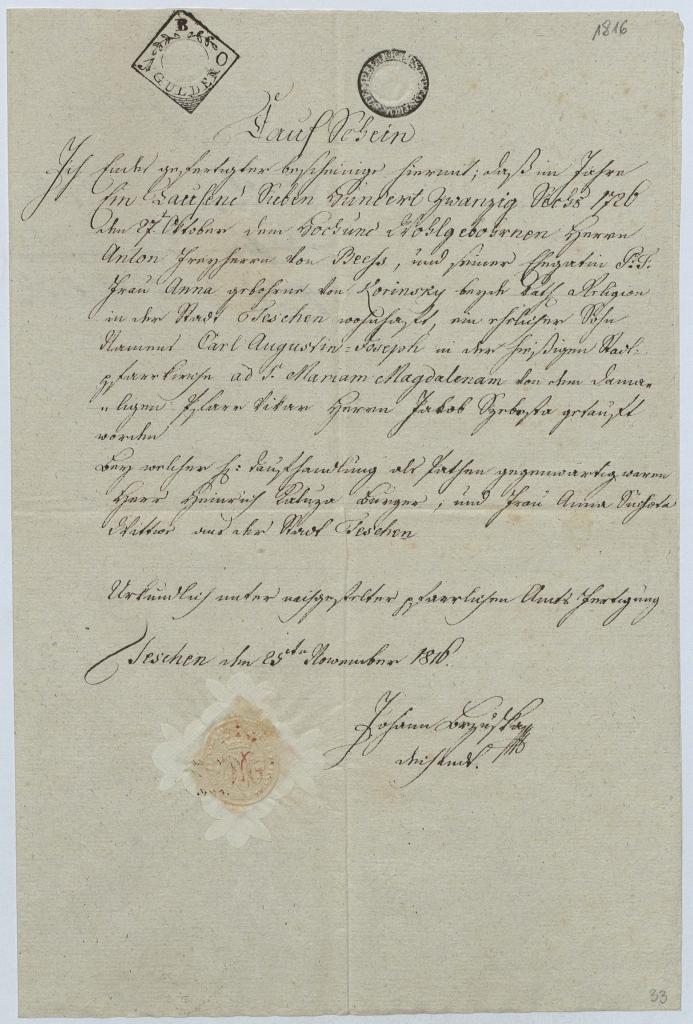 1816
B
A GULDEN O
Tauf Schein
Ich Endes gefertigter bescheinige hiermit, daß im Jahre
Ein Tausend Sieben Hundert Zwanzig Sechs 1726
den 27. Oktober dem Hoch und Wohlgebohrnen Herrn
Anton Freyherrn von Beess, und seiner Ehegatin P: T:
Frau Anna gebohrne von Korinsky beyde kath: Religion
in der Stadt Teschen wohnhaft, ein ehelicher Sohn
Namens Carl Augustin-Joseph in der hießigen Stadt-
pfarrkirche ad S. Mariam Magdalenam von dem dama-
-ligen Pfarr Vikar Herrn Jakob Szebesta getauft
worden
Bey welcher H: Taufhandlung als Pathen gegenwärtig waren
Herr Heinrich Kaluza Bürger, und Frau Anna Suchota
Wittwe aus der Stadt Teschen
Urkundlich unter beigestelter pfarrlichen Amts Fertigung
Teschen den 25ten November 1816.
Johann Brzuska
Dechant.
33